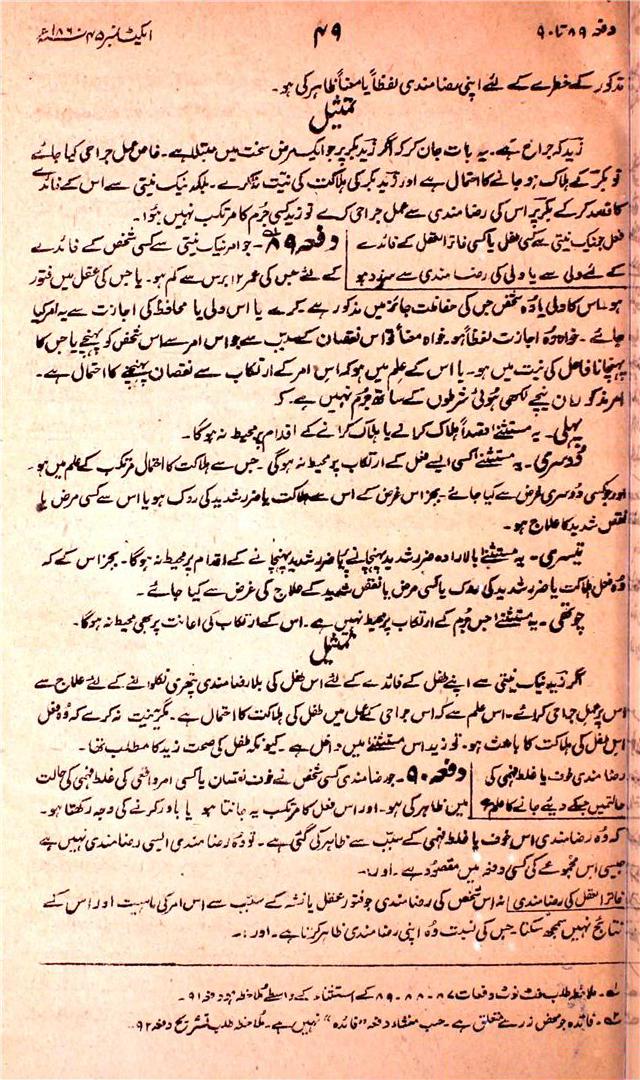 دفعہ ۸۹ تا ۹۰
۴۹
ایکٹ نمبر ۴۵ ۱۸۶۰ء
مذکور کے خطرے کے لئے اپنی رضامندی لفظاً یا معناً ظاہر کی ہو۔
تمثیل
زید کہ جراح ہے۔ یہ بات جان کر کہ اگر زید بکر پر جو ایک مرض سخت میں مبتلا ہے۔ خاص عمل جراحی کیا جائے
تو بکر کے ہلاک ہو جانے کا احتمال ہے اور زید بکر کی ہلاکت کی نیت نہ کرے۔ بلکہ نیک نیتی سے اس کے فائدے
کا قصد کر کے بکر پر اس کی رضا مندی سے عمل جراحی کرے تو زید کسی جرم کا مرتکب نہیں ہوا۔
فعل جو نیک نیتی سے کسی طفل یا کسی فاتر العقل کے فائدے
کے لئے ولی سے یا ولی کی رضا مندی سے سرزد ہو
دفعہ ۸۹۔ جو امر نیک نیتی سے کسی شخص کے فائدے
کے لئے جس کی عمر ۱۲ برس سے کم ہو۔ یا جس کی عقل میں فتور
ہو۔ اس کا ولی یا وہ شخص جس کی حفاظت جائز میں مذکور ہے کرے یا اس ولی یا محافظ کی اجازت سے یہ امر کیا
جائے۔ خواہ وہ اجازت لفظاً ہو۔ خواہ معناً تو اس نقصان کے سبب سے جو اس امر سے اس شخص کو پہنچے یا جس کا
پہنچانا فاعل کی نیت میں ہو۔ یا اس کے علم میں ہو کہ اس امر کے ارتکاب سے نقصان پہنچنے کا احتمال ہے۔
امر مذکور ان نیچے لکھی ہوئی شرطوں کے ساتھ جرم نہیں ہے۔ کہ
پہلی۔ یہ مستثنےٰ قصداً ہلاک کرنے یا ہلاک کرانے کے اقدام پر محیط نہ ہوگا۔
دوسری۔ یہ مستثنےٰ کسی ایسے فعل کے ارتکاب پر محیط نہ ہوگی۔ جس سے ہلاکت کا احتمال مرتکب کے علم میں ہو۔
اور جو کسی دوسری غرض سے کیا جائے۔ بجز اس غرض کے اس سے ہلاکت یا ضرر شدید کی روک ہو یا اس سے کسی مرض یا
نقص شدید کا علاج ہو۔
تیسری۔ یہ مستثنےٰ بالارادہ ضرر شدید پہنچانے یا ضرر شدید پہنچانے کے اقدام پر محیط نہ ہوگا۔ بجز اس کے کہ
وہ فعل ہلاکت یا ضرر شدید کی روک یا کسی مرض یا نقص شدید کے علاج کی غرض سے کیا جائے۔
چوتھی۔ یہ مستثنےٰ جس جرم کے ارتکاب پر محیط نہیں ہے۔ اس کے ارتکاب کی اعانت پر بھی محیط نہ ہوگا۔
تمثیل
اگر زید نیک نیتی سے اپنے طفل کے فائدے کے لئے اس طفل کی بلا رضامندی پتھری نکلوانے کے لئے علاج سے
اس پر عمل جراحی کرائے۔ اس علم سے کہ اس جراحی کے عمل میں طفل کی ہلاکت کا احتمال ہے۔ مگر نیت نہ کرے کہ وہ فعل
اس طفل کی ہلاکت کا باعث ہو۔ تو زید اس مستثنےٰ میں داخل ہے۔ کیونکہ طفل کی صحت زید کا مطلب تھا۔
رضامندی خوف یا غلط فہمی کی
حالت میں جسکے دیئے جانے کا علم ہو
دفعہ ۹۰۔ جو رضامندی کسی شخص نے خوف نقصان یا کسی امر واقعی کی غلط فہمی کی حالت
میں ظاہر کی ہو۔ اور اس فعل کا مرتکب یہ جانتا ہو یا باور کرنے کی وجہ رکھتا ہو۔
کہ وہ رضامندی اس خوف یا غلط فہمی کے سبب سے ظاہر کی گئی ہے۔ تو وہ رضامندی ایسی رضامندی نہیں ہے
جیسی اس مجموعے کی کسی دفعہ میں مقصود ہے۔ اور:۔
فاتر العقل کی رضامندی
نہ اس شخص کی رضامندی جو فتور عقل یا نشہ کے سبب سے اس امر کی ماہیت اور اس کے
نتائج نہیں سمجھ سکتا۔ جس کی نسبت وہ اپنی رضامندی ظاہر کرتا ہے۔ اور:۔
۱۔ ملاحظہ طلب فٹ نوٹ دفعات ۸۷۔۸۸۔۸۹ کے استثناء کے واسطے ملاحظہ ہو دفعہ ۹۱۔
۲۔ فائدہ جو محض زر سے متعلق ہے۔ حسب منشاء دفعہ "فائدہ" نہیں ہے۔ ملاحظہ طلب تشریح دفعہ ۹۲۔